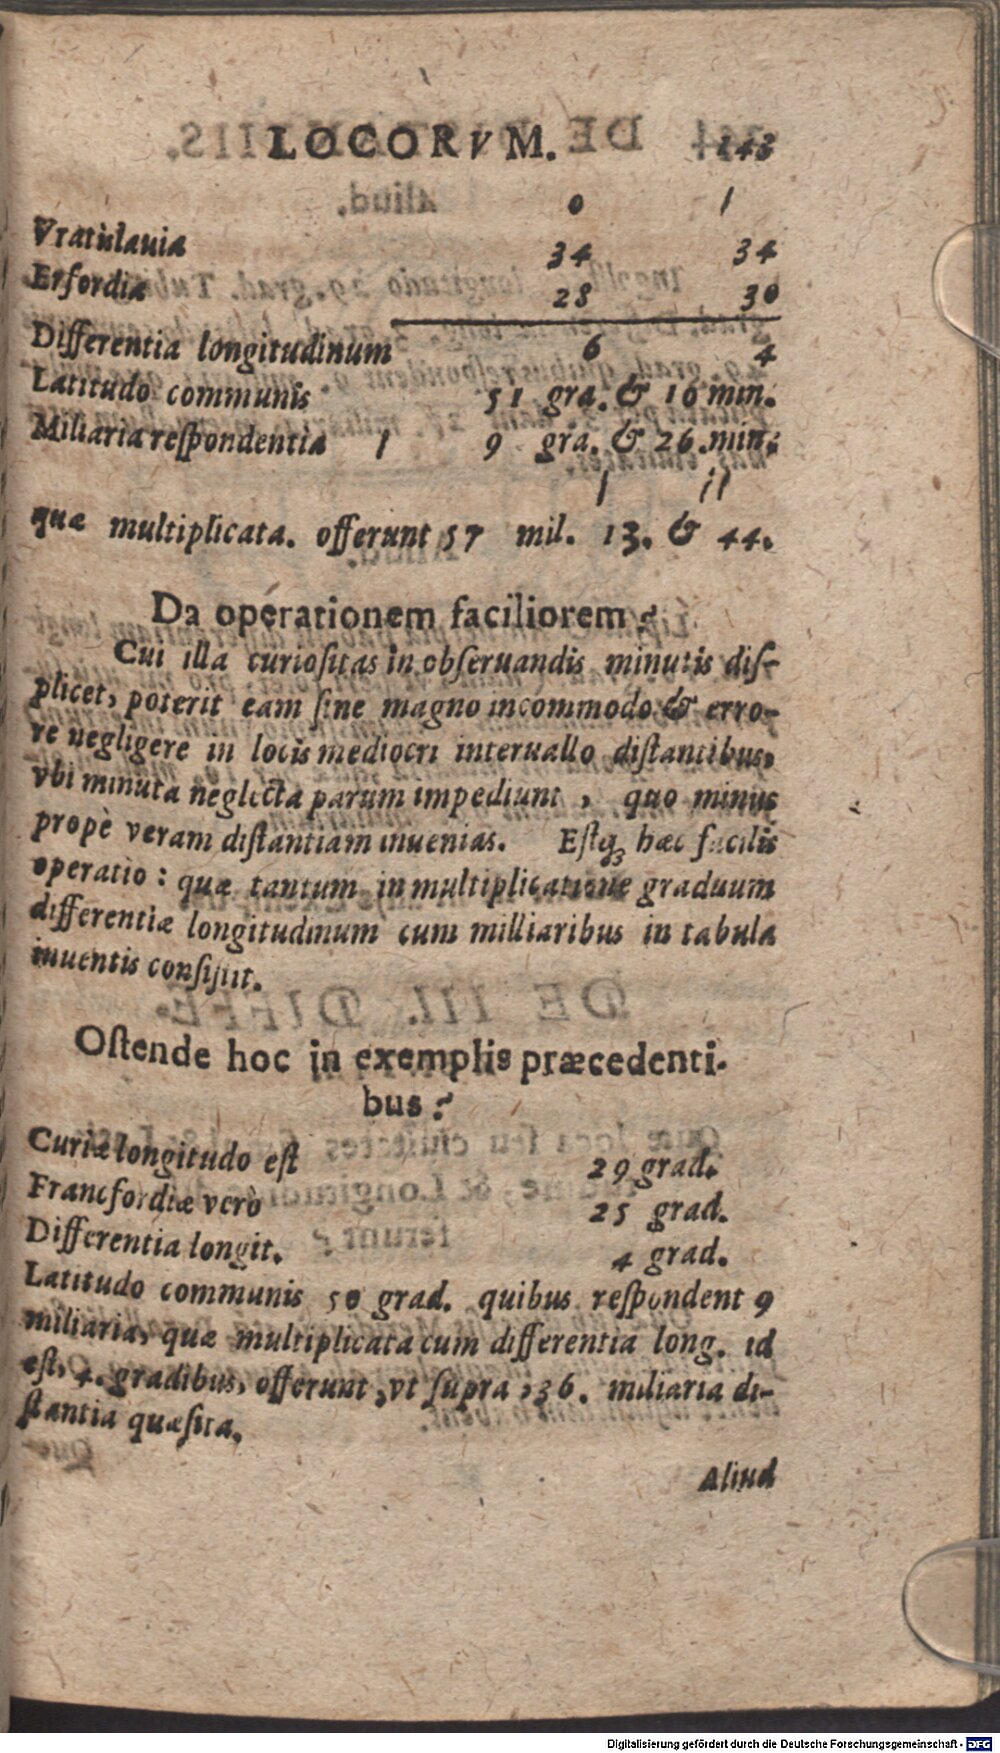 LOCORVM. 143
0 1
Vratislauia 34 34
Erfordia 28 30
Differentia longitudinum 6 4
Latitudo communis 51 gra. & 10 min.
Miliaria respondentia 1 9 gra. & 26. min.
1 11
quæ multiplicata. offerunt 57 mil. 13. & 44.
Da operationem faciliorem?
Cui illa curiositas in obseruandis minutis dis-
plicet, poterit eam sine magno incommodo & erro-
re negligere in locis mediocri interuallo distantibus,
vbi minuta neglecta parum impediunt , quo minus
propè veram distantiam inuenias. Estq́; hæc facilis
operatio : quæ tantum in multiplicatione graduum
differentiæ longitudinum cum milliaribus in tabula
inuentis consistit.
Ostende hoc in exemplis præcedenti-
bus?
Curiæ longitudo est 29 grad.
Francfordiæ verò 25 grad.
Differentia longit. 4 grad.
Latitudo communis 50 grad. quibus respondent 9
miliaria, quæ multiplicata cum differentia long. id
est, 4. gradibus, offerunt, vt supra, 36. miliaria di-
stantia quæsita.
Aliud
Digitalisierung gefördert durch die Deutsche Forschungsgemeinschaft - DFG